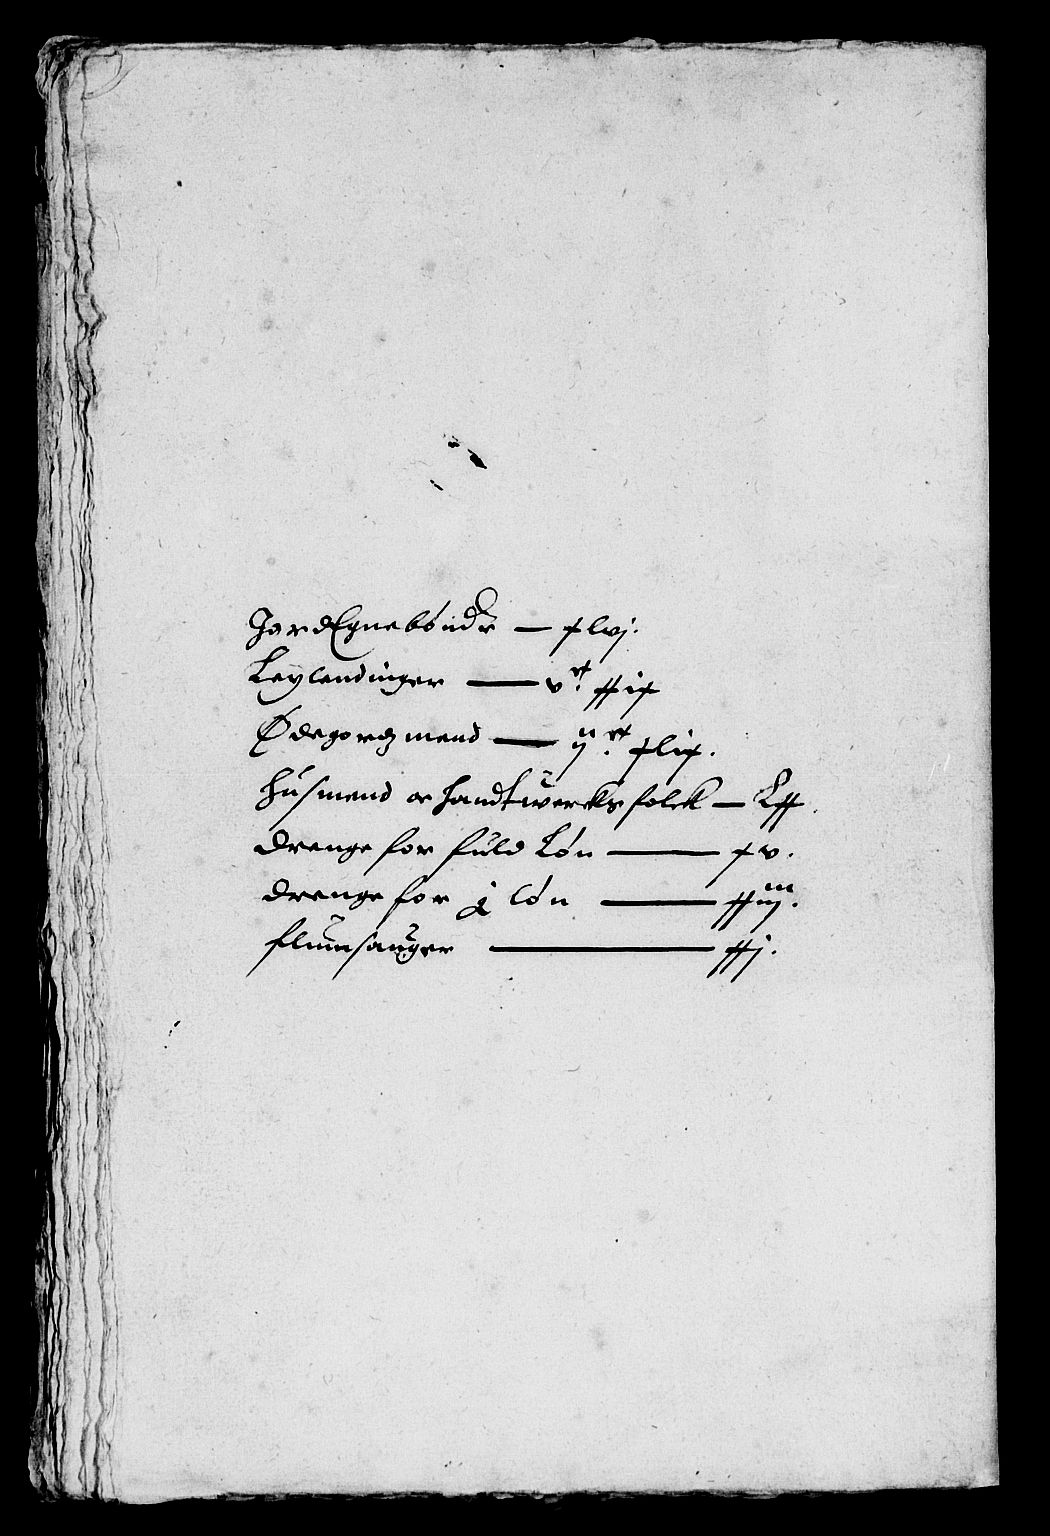 JordEgnebönder — xlvj.
Leylendinger — vᶜ. xxix
Ødegordzmend — ijᶜ. xlix.
Husmend oc handtwercks folck — Lxx.
drenge for fuld Løn — xv.
drenge for ½ løn — xxiij.
flumsauger — xxj.